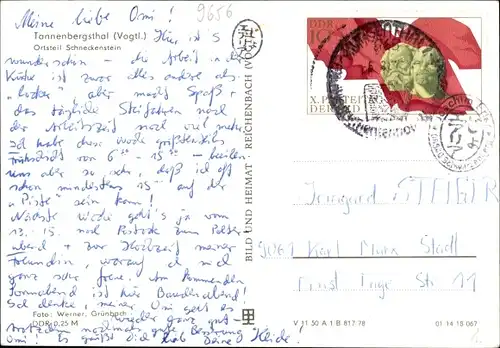 Meine liebe Omi!
9656
Tannenbergsthal (Vogtl.)
Ortsteil Schneckenstein
Hier ist's
wunderschön – die Arbeit in der
Küche ist zwar alles andere als
"locker" aber macht Spaß +
das tägliche Skifahren nach
der Arbeitszeit noch viel mehr
Ich habe diese Woche größtenteils
Frühschicht von 6⁰⁰ - 15⁰⁰ –
aber so sehr, daß ich oft
schon mindestens 15 auf der
"Piste" sein kann!
Nächste Woche geht's ja vom
13.-15. nach Rostock zum Polter-
abend + zur Hochzeit meiner
Freundin, worauf ich mich
ganz sehr freue. Am kommenden
Sonnabend ist hier Baudenabend!
Ich denke, meiner Omi geht es
wieder ganz gut –
trotzdem nochmals gute Besserung
Omi! Es grüßt dich lieb Deine Heide!
Foto: Werner, Grünbach
DDR 0,25 M
BILD UND HEIMAT REICHENBACH (VOGTL)
DDR
10
X. PARTEITAG
DER SED
Irmgard
9061 Karl Marx Stadt
Ernst Enge Str 11
V 11 50 A 1 B 817/78
01 14 18 067